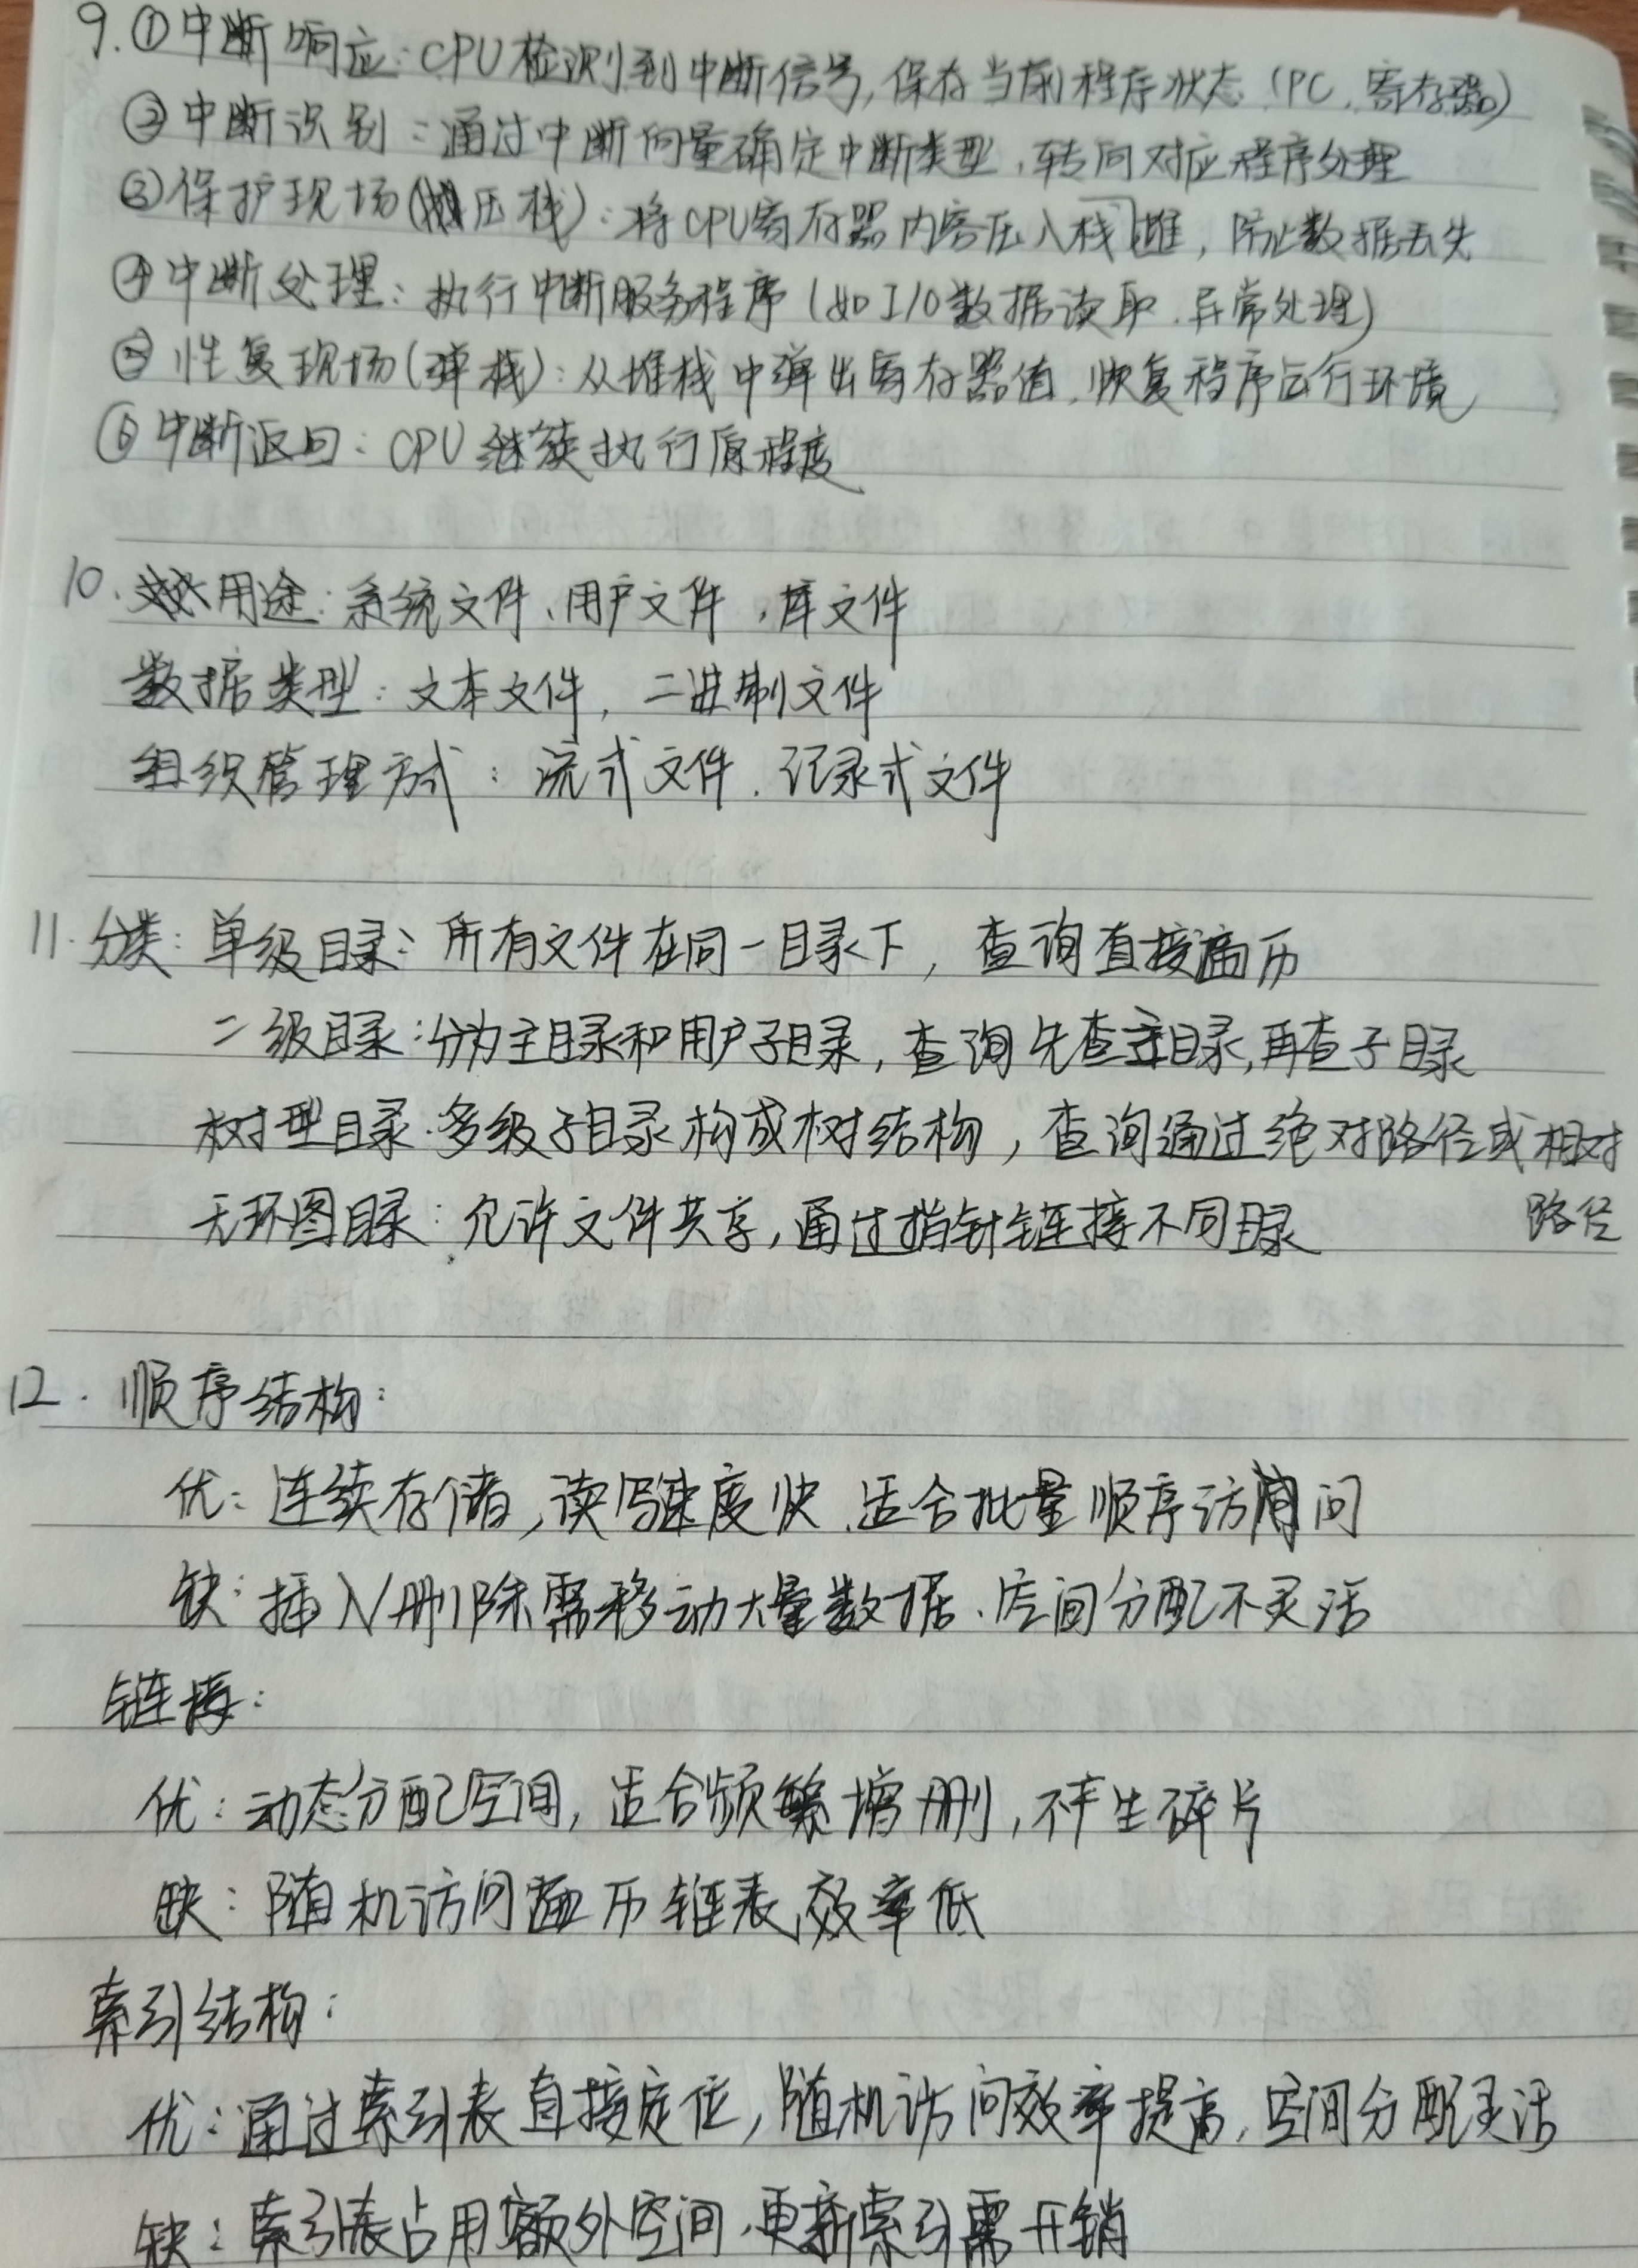 9.①中断响应:CPU检测到中断信号,保存当前程序状态(PC、寄存器)
②中断识别:通过中断向量确定中断类型,转向对应程序处理
③保护现场(压栈):将CPU寄存器内容压入栈堆,防止数据丢失
④中断处理:执行中断服务程序(如I/O数据读取、异常处理)
⑤恢复现场(弹栈):从堆栈中弹出寄存器值,恢复程序运行环境
⑥中断返回:CPU继续执行原程度
10.用途:系统文件、用户文件,库文件
数据类型:文本文件,二进制文件
组织管理方式:流式文件、记录式文件
11.分类:单级目录:所有文件在同一目录下,查询直接遍历
二级目录:分为主目录和用户子目录,查询先查主目录,再查子目录
树型目录:多级子目录构成树结构,查询通过绝对路径或相对
路径
无环图目录:允许文件共享,通过指针链接不同目录
12.顺序结构:
优:连续存储,读写速度快、适合批量顺序访问
缺:插入/删除需移动大量数据、空间分配不灵活
链接:
优:动态分配空间,适合频繁增删,不产生碎片
缺:随机访问遍历链表,效率低
索引结构:
优:通过索引表直接定位,随机访问效率提高,空间分配灵活
缺:索引表占用额外空间,更新索引需开销